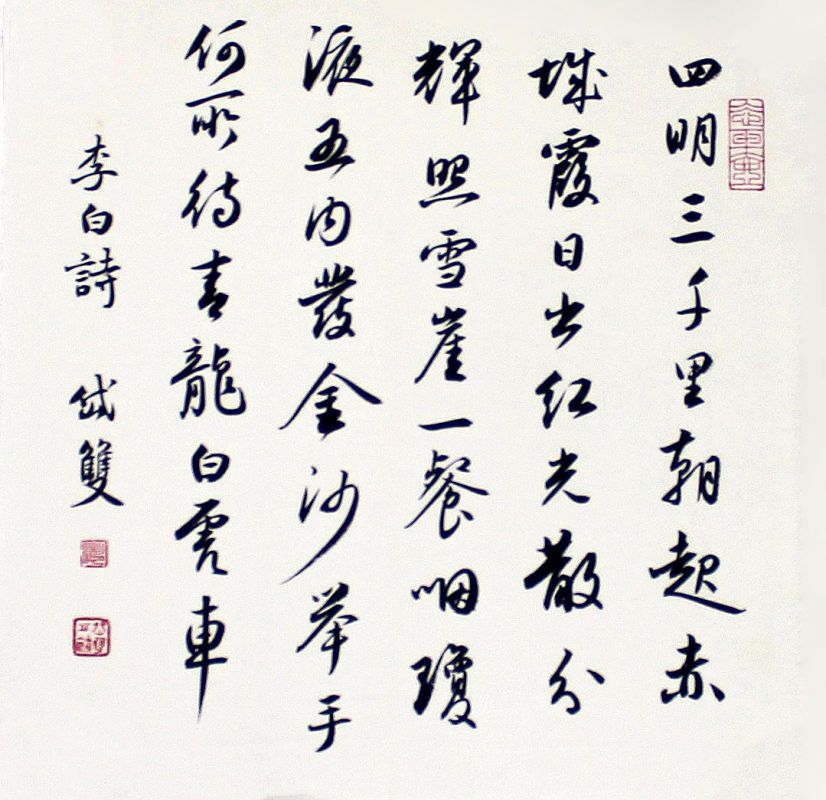 四明三千里朝起赤
城霞日出红光散分
輝照雪崖一餐咽瓊
液五内發金沙举手
何所待青龍白虎車
李白詩 岱雙